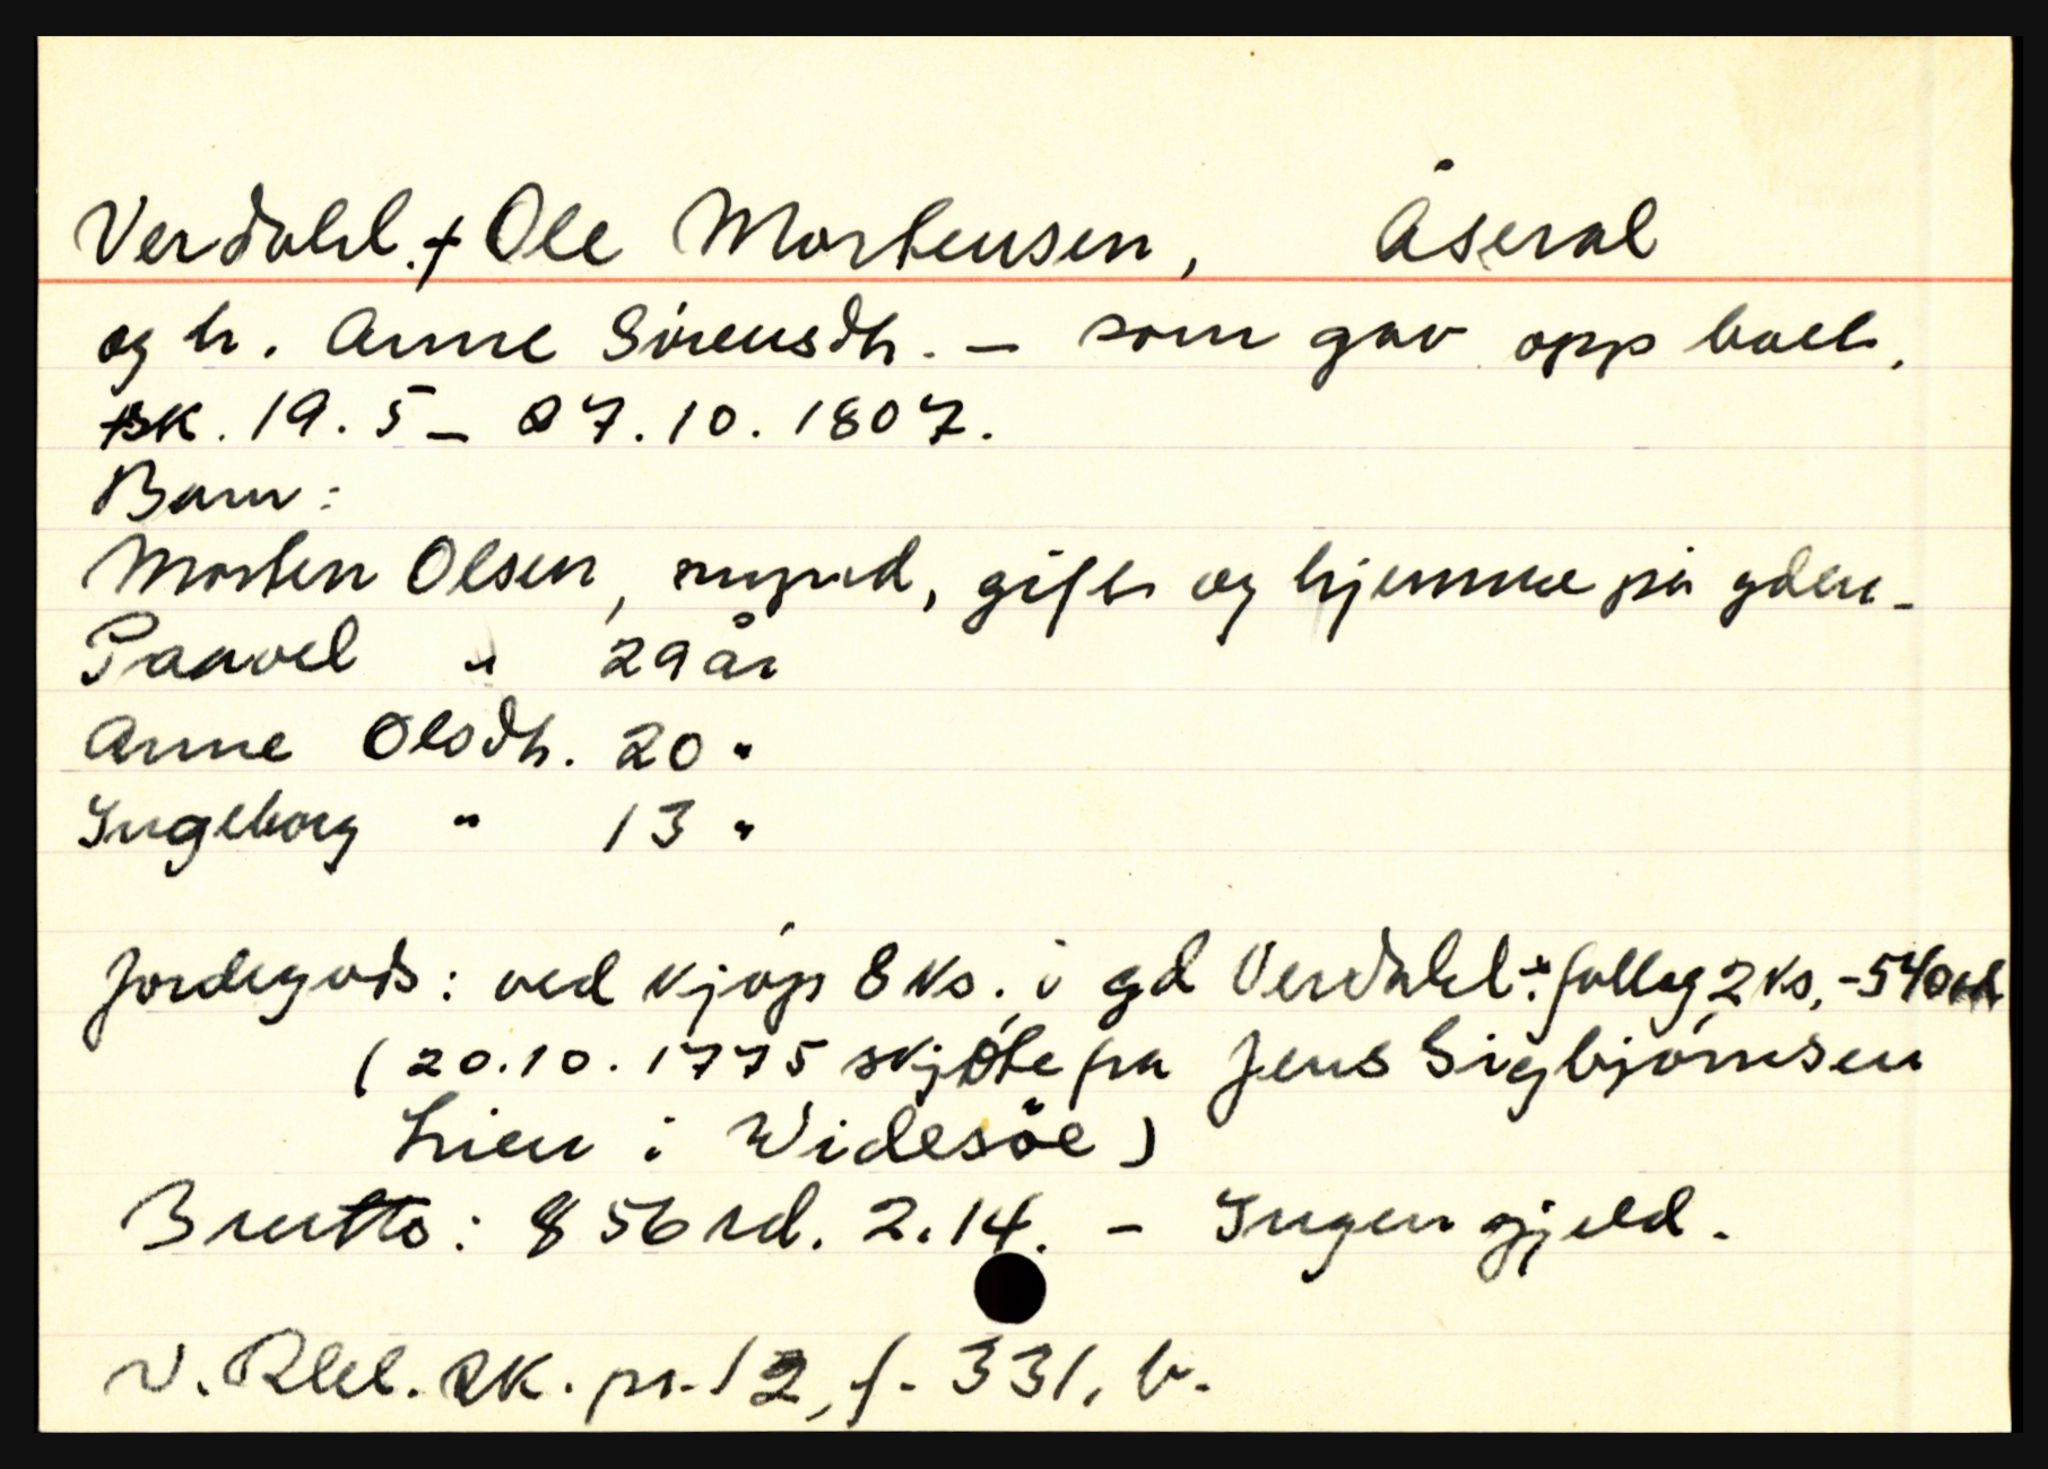 Verdahl. + Ole Mortensen, Åseral
og h. Anne Sörensdh. - som gav opp boet.
sk. 19.5 - 27.10.1807.
Barn:
Morten Olsen, mynd, gift og hjemme på gden.
Paavel " 29 år
Anne Olsdh. 20 "
Ingeborg " 13 "
Jordegods: ved kjöp 8 ks. i gd Verdahl + følleg 2 ks. - 540 rd
(20.10.1775 skjöte fra Jens Sigbjörnsen
Lien i Widesöe)
Brutto: 856 rd. 2.14. - Ingen gjeld.
V. Rbl. sk. pr. 12, f. 331, b.